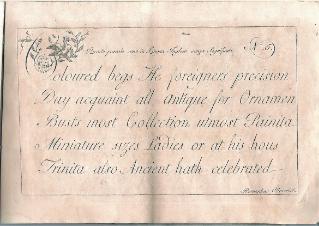 oloured begs The foreigners precision
Day acquaint all antique for Ornamen
Busts most Collection utmost Painita
Miniature sizes Ladies or at his hous
Trinita also Ancient hath celebrated